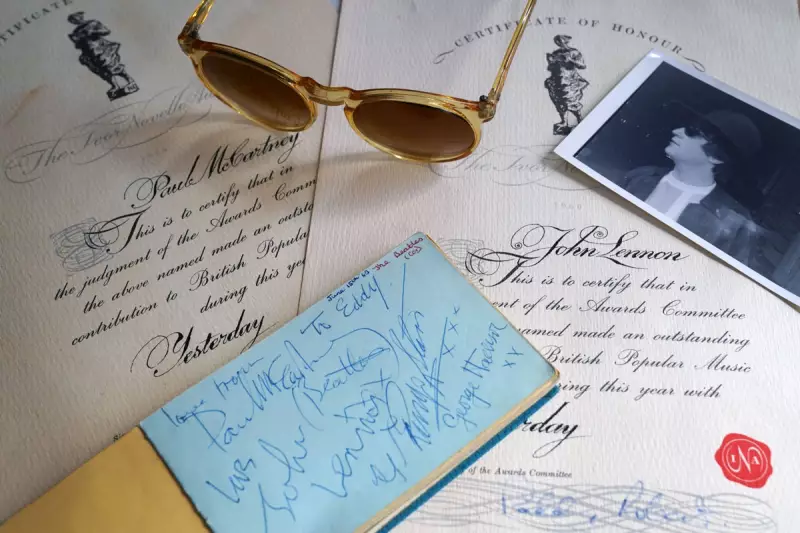 CERTIFICATE
The Ivor Novello
Paul McCartney
This is to certify that in
the judgment of the Awards Commi
the above named made an outsta
contribution to British Popular
during this year
Yesterday
CERTIFICATE OF HONOUR
The Ivor
John Lennon
This is to certify that in
t of the Awards Committee
named made an outstanding
British Popular Music
ring this year with
day
of the Awards Committee
INA
The Beatles
To Eddy
love from
Paul McCartney
luv
John (Beatle)
Lennon
George Harrison
xx